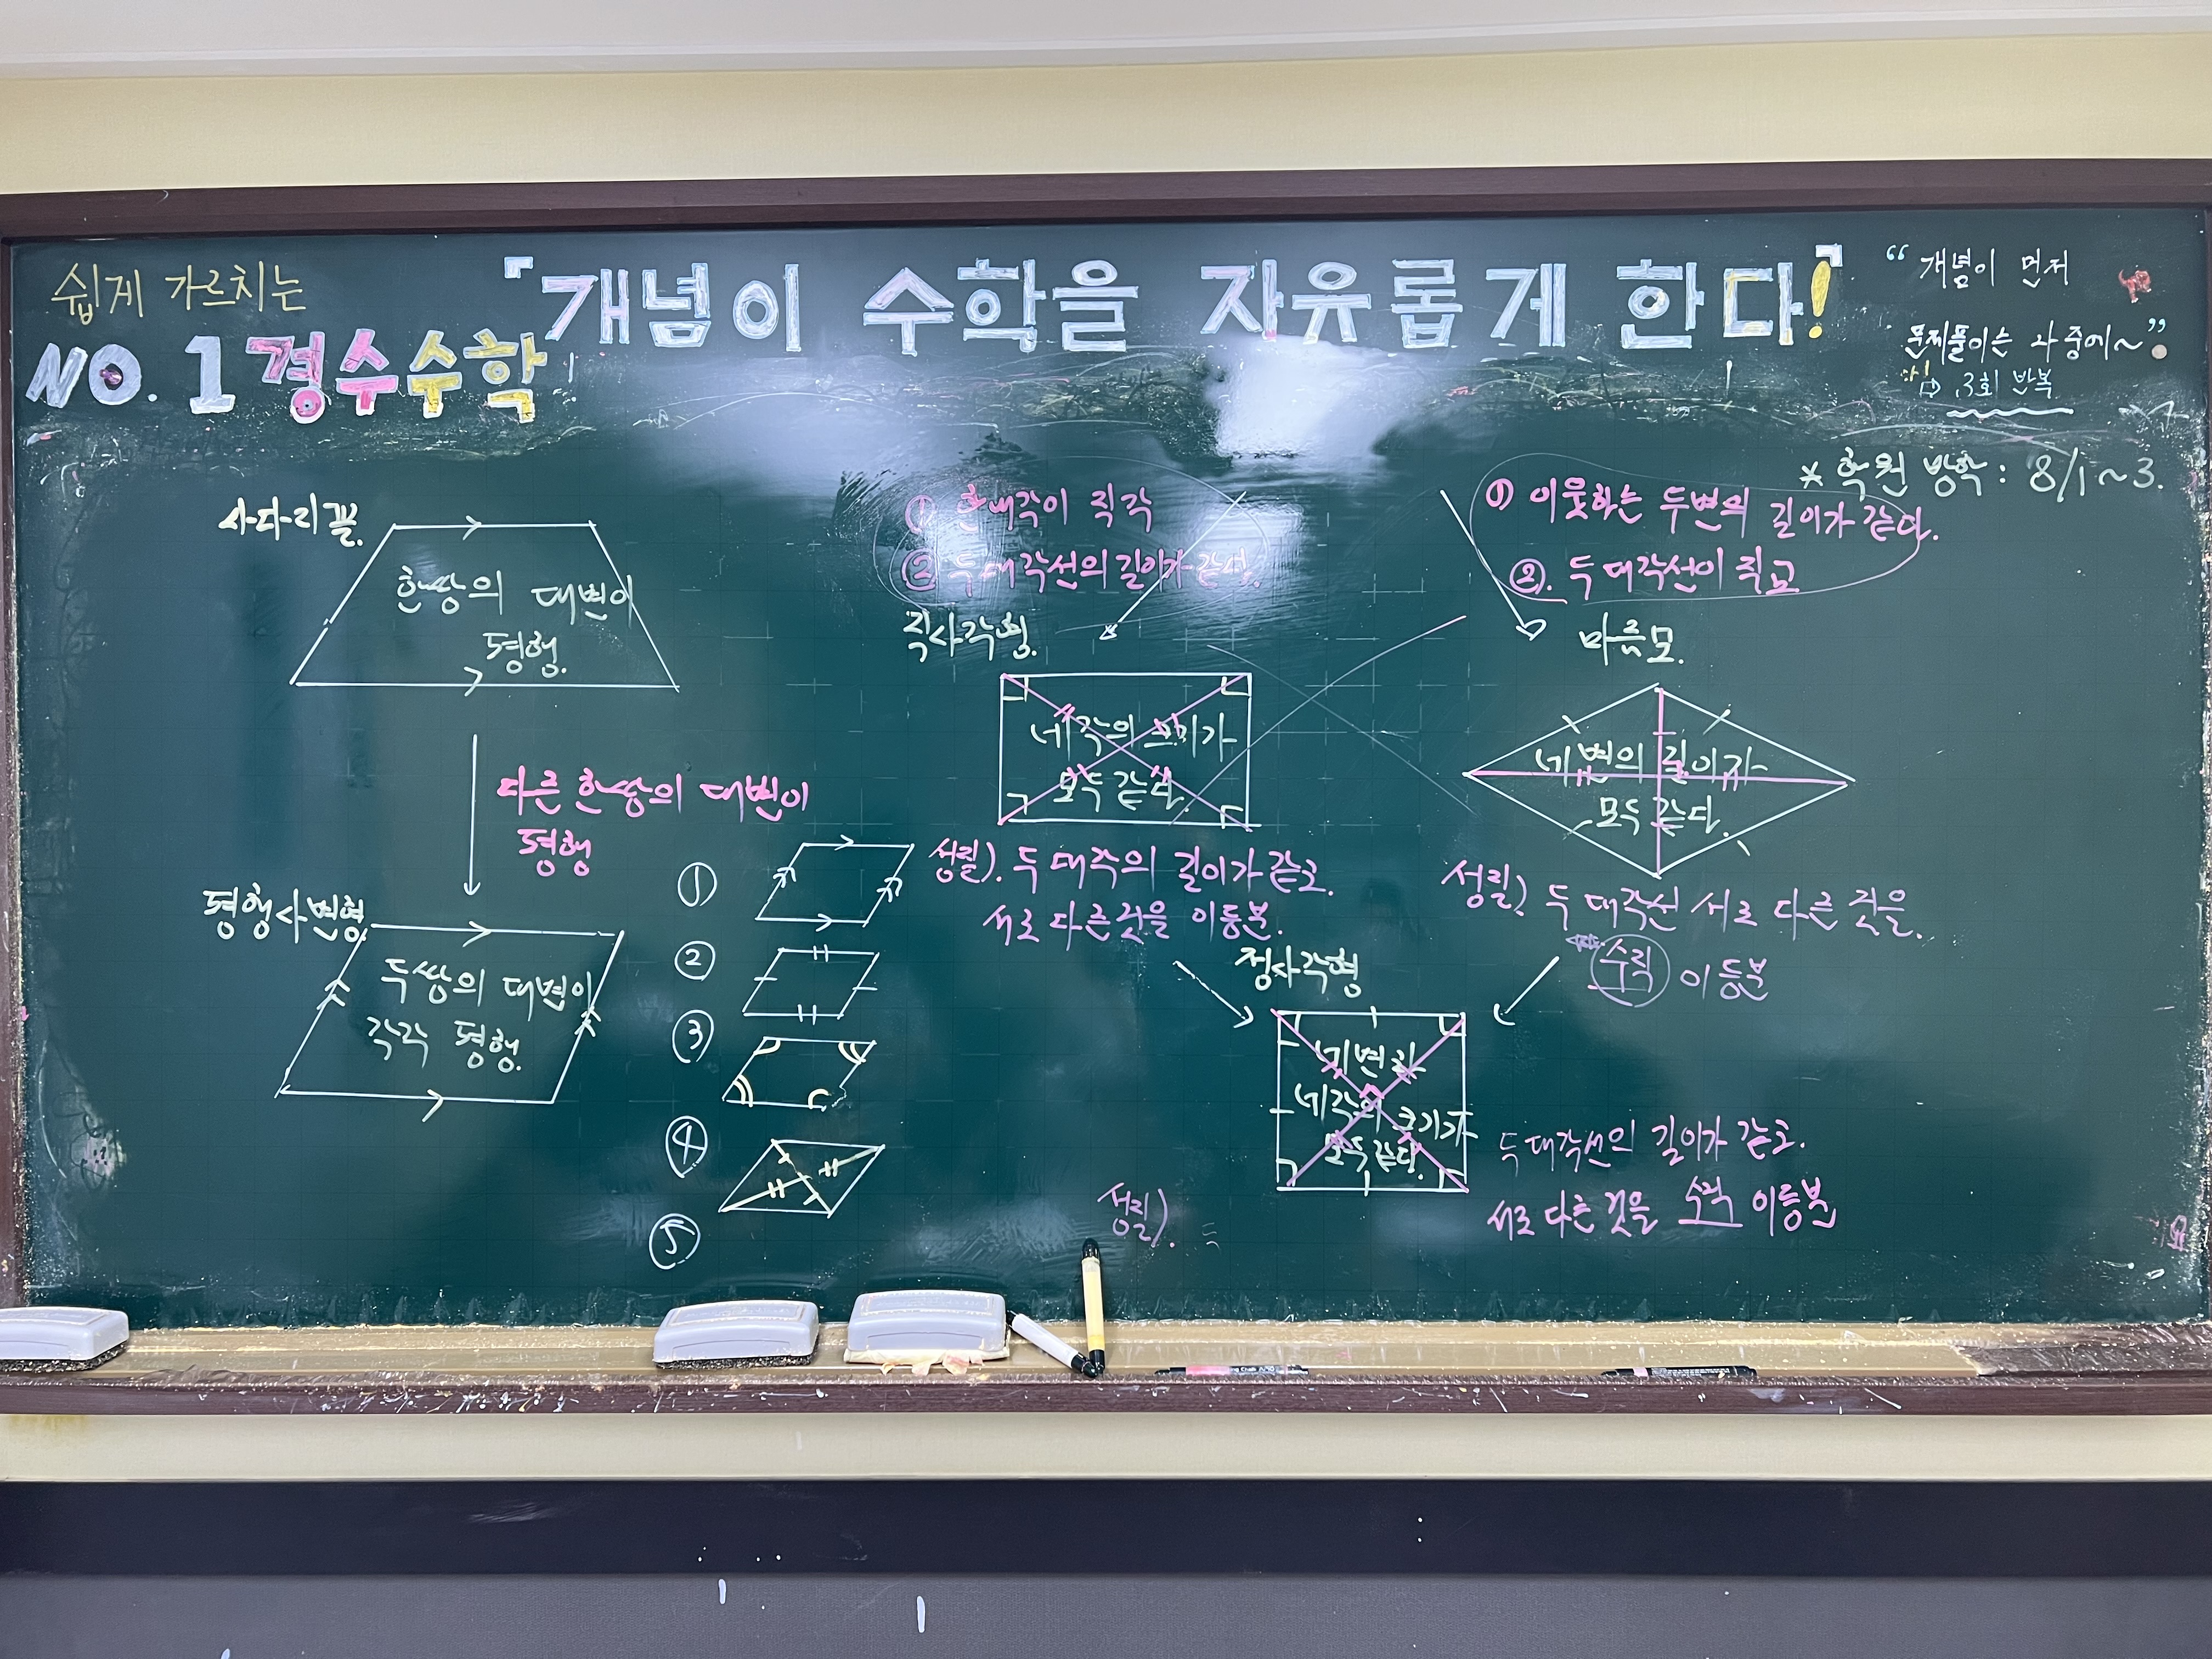 쉽게 가르치는
NO. 1 경수수학
「개념이 수학을 자유롭게 한다!」
“ 개념이 먼저
문제풀이는 나중에~ ”
⇨ 3회 반복
* 학원 방학 : 8/1 ~ 3.
사다리꼴.
한쌍의 대변이
평행.
다른 한쌍의 대변이
평행
평행사변형
두쌍의 대변이
각각 평행.
①
②
③
④
⑤
① 한내각이 직각
② 두 대각선의 길이가 같다.
직사각형.
네 각의 크기가
모두 같다.
성질). 두 대각의 길이가 같고.
서로 다른 것을 이등분.
① 이웃하는 두변의 길이가 같다.
②. 두 대각선이 직교
마름모.
네 변의 길이가
모두 같다.
성질) 두 대각선 서로 다른 것을.
수직 이등분
정사각형
네변과
네각의 크기가
모두 같다.
두 대각선의 길이가 같고.
서로 다른 것을 수직 이등분
성질).